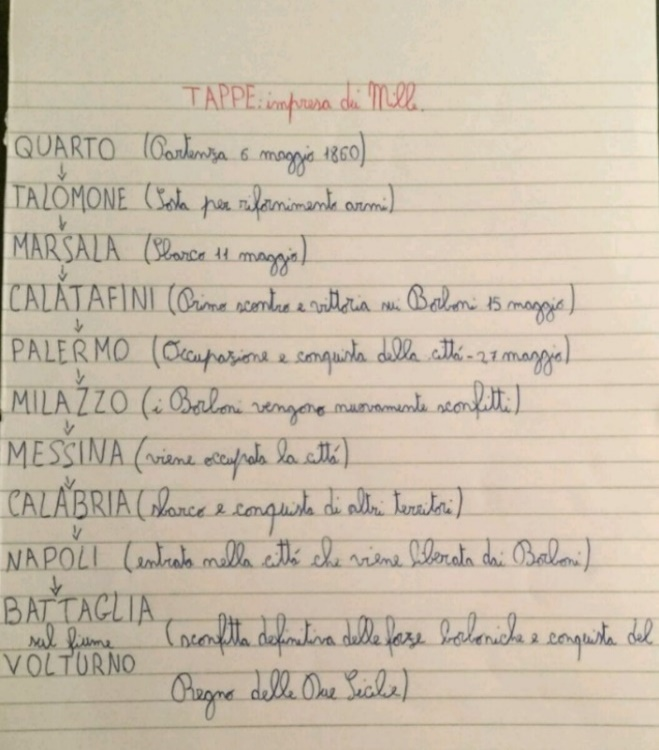 TAPPE: impresa dei Mille.
QUARTO (Partenza 6 maggio 1860)
↓
TALOMONE (Sosta per rifornimento armi)
↓
MARSALA (Sbarco 11 maggio)
↓
CALATAFINI (Primo scontro e vittoria sui Borboni 15 maggio)
↓
PALERMO (Occupazione e conquista della cittá - 27 maggio)
↓
MILAZZO (i Borboni vengono nuovamente sconfitti)
↓
MESSINA (viene occupata la cittá)
↓
CALABRIA (sbarco e conquista di altri territori)
↓
NAPOLI (entrata nella cittá che viene liberata dai Borboni)
↓
BATTAGLIA
sul fiume (sconfitta definitiva delle forze borboniche e conquista del
VOLTURNO
Regno delle Due Sicilie)